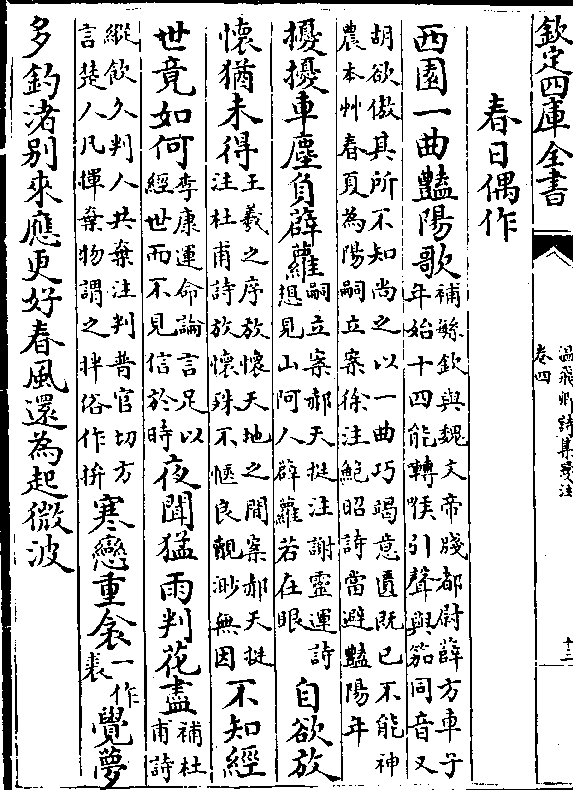 欽定四庫全書
溫飛卿詩集箋注
卷四
十三
春日偶作
西園一曲豔陽歌補繁欽與魏文帝牋都尉薛方車子
年始十四能轉喉引聲與笳同音又
胡欲傲其所不知尚之以一曲巧竭意匱既已不能神
農本艸春夏為陽嗣立案徐注鮑昭詩當避豔陽年
擾擾車塵負薜蘿嗣立案郝天挺注謝靈運詩
想見山阿人薜蘿若在眼自欲放
懷猶未得王羲之序放懷天地之間案郝天挺
注杜甫詩放懷殊不愜良覿渺無因不知經
世竟如何李康運命論言足以
經世而不見信於時夜聞猛雨判花盡補杜
甫詩
縱飲久判人共棄注判普官切方
言楚人凡揮棄物謂之拌俗作拚寒戀重衾一作
裘覺夢
多釣渚别來應更好春風還為起微波